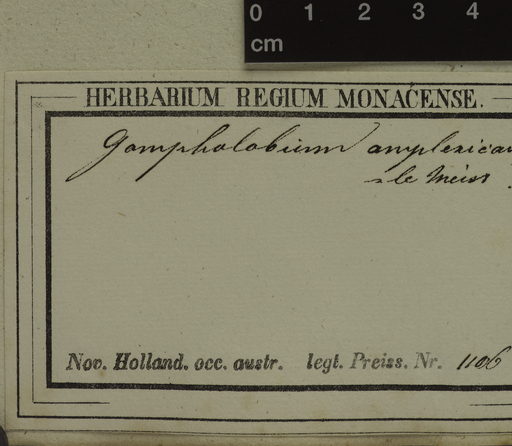 0 1 2 3 4
cm
HERBARIUM REGIUM MONACENSE.
Gompholobium amplexicau
-le Meisr
Nov. Holland. occ. austr. legt. Preiss. Nr. 1106